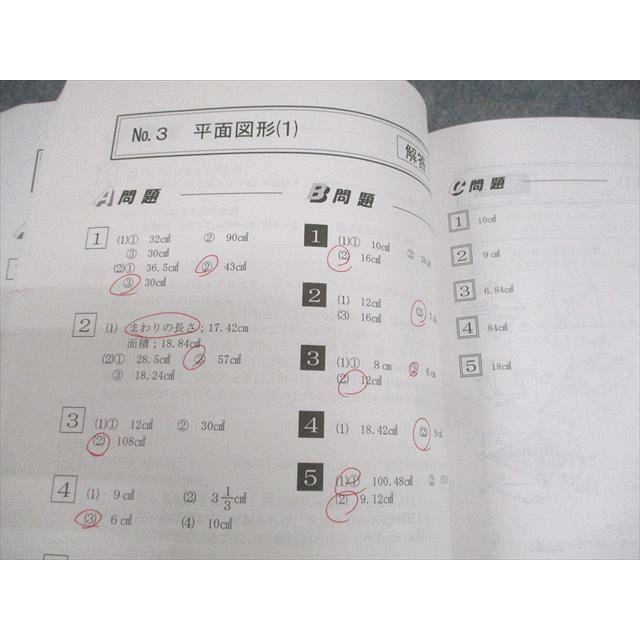 No. 3 平面図形(1)
解答
A 問題
1 (1)① 32c㎡ ② 90c㎡
③ 30c㎡
(2)① 36.5c㎡ ② 43c㎡
③ 30c㎡
2 (1) まわりの長さ；17.42cm
面積；18.84c㎡
(2)① 28.5c㎡ ② 57c㎡
③ 18.24c㎡
3 (1)① 12c㎡ ② 30c㎡
(2) 108c㎡
4 (1) 9c㎡ (2) 3 1/3 c㎡
(3) 6c㎡ (4) 10c㎡
B 問題
1 (1)① 10c㎡ ②
(2) 16c㎡
2 (1) 12c㎡ (2)
(3) 16c㎡
3 (1)① 8cm ② 6cm
(2) 12c㎡
4 (1) 18.42c㎡ (2)
5 (1)① 100.48c㎡ ②
(2) 9.12c㎡
C 問題
1 10c㎡
2 9c㎡
3 6.84c㎡
4 84c㎡
5 18c㎡